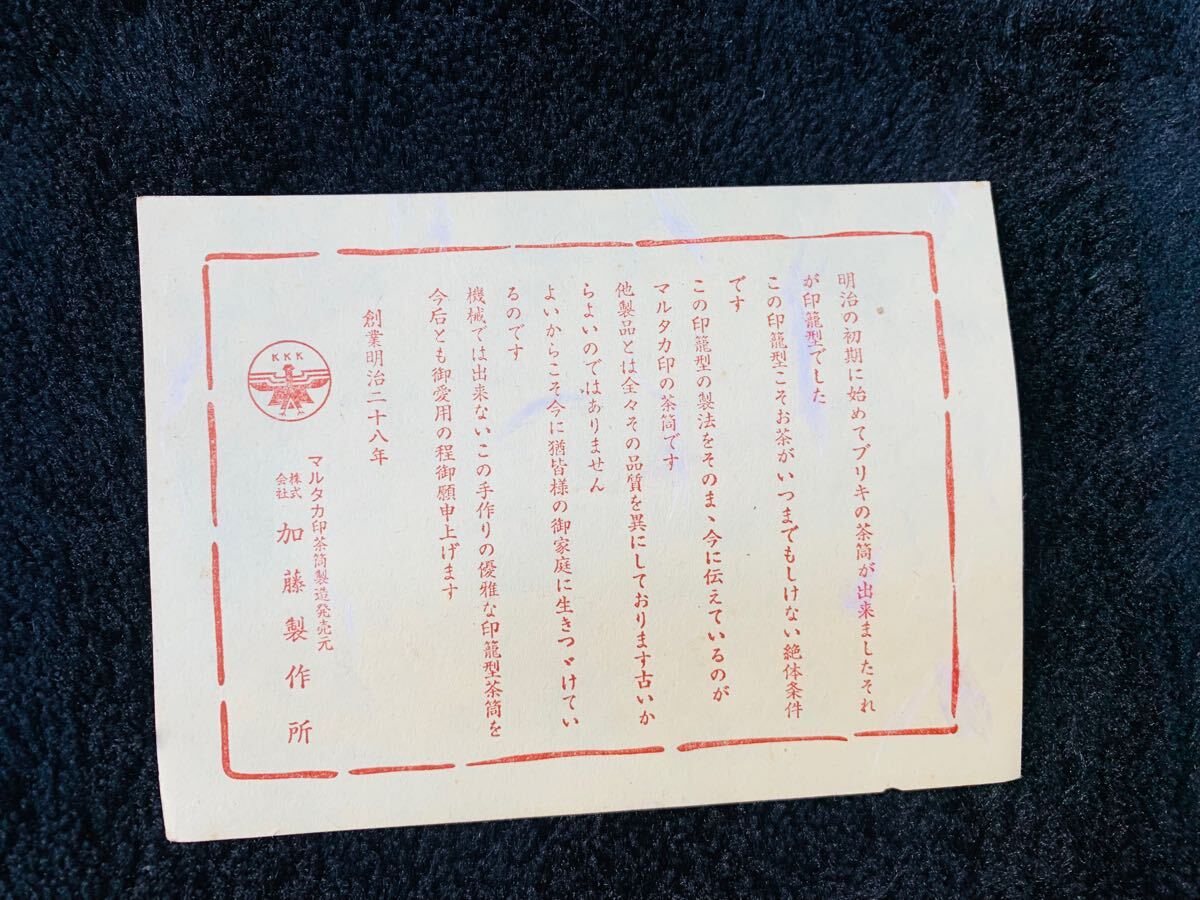 明治の初期に始めてブリキの茶筒が出来ましたそれ
が印籠型でした
この印籠型こそお茶がいつまでもしけない絶体条件
です
この印籠型の製法をそのまゝ今に伝えているのが
マルタカ印の茶筒です
他製品とは全々その品質を異にしております古いか
らよいのではありません
よいからこそ今に猶皆様の御家庭に生きつゞけてい
るのです
機械では出来ないこの手作りの優雅な印籠型茶筒を
今后とも御愛用の程御願申上げます
創業明治二十八年
KKK
マルタカ印茶筒製造発売元
株式会社 加藤製作所